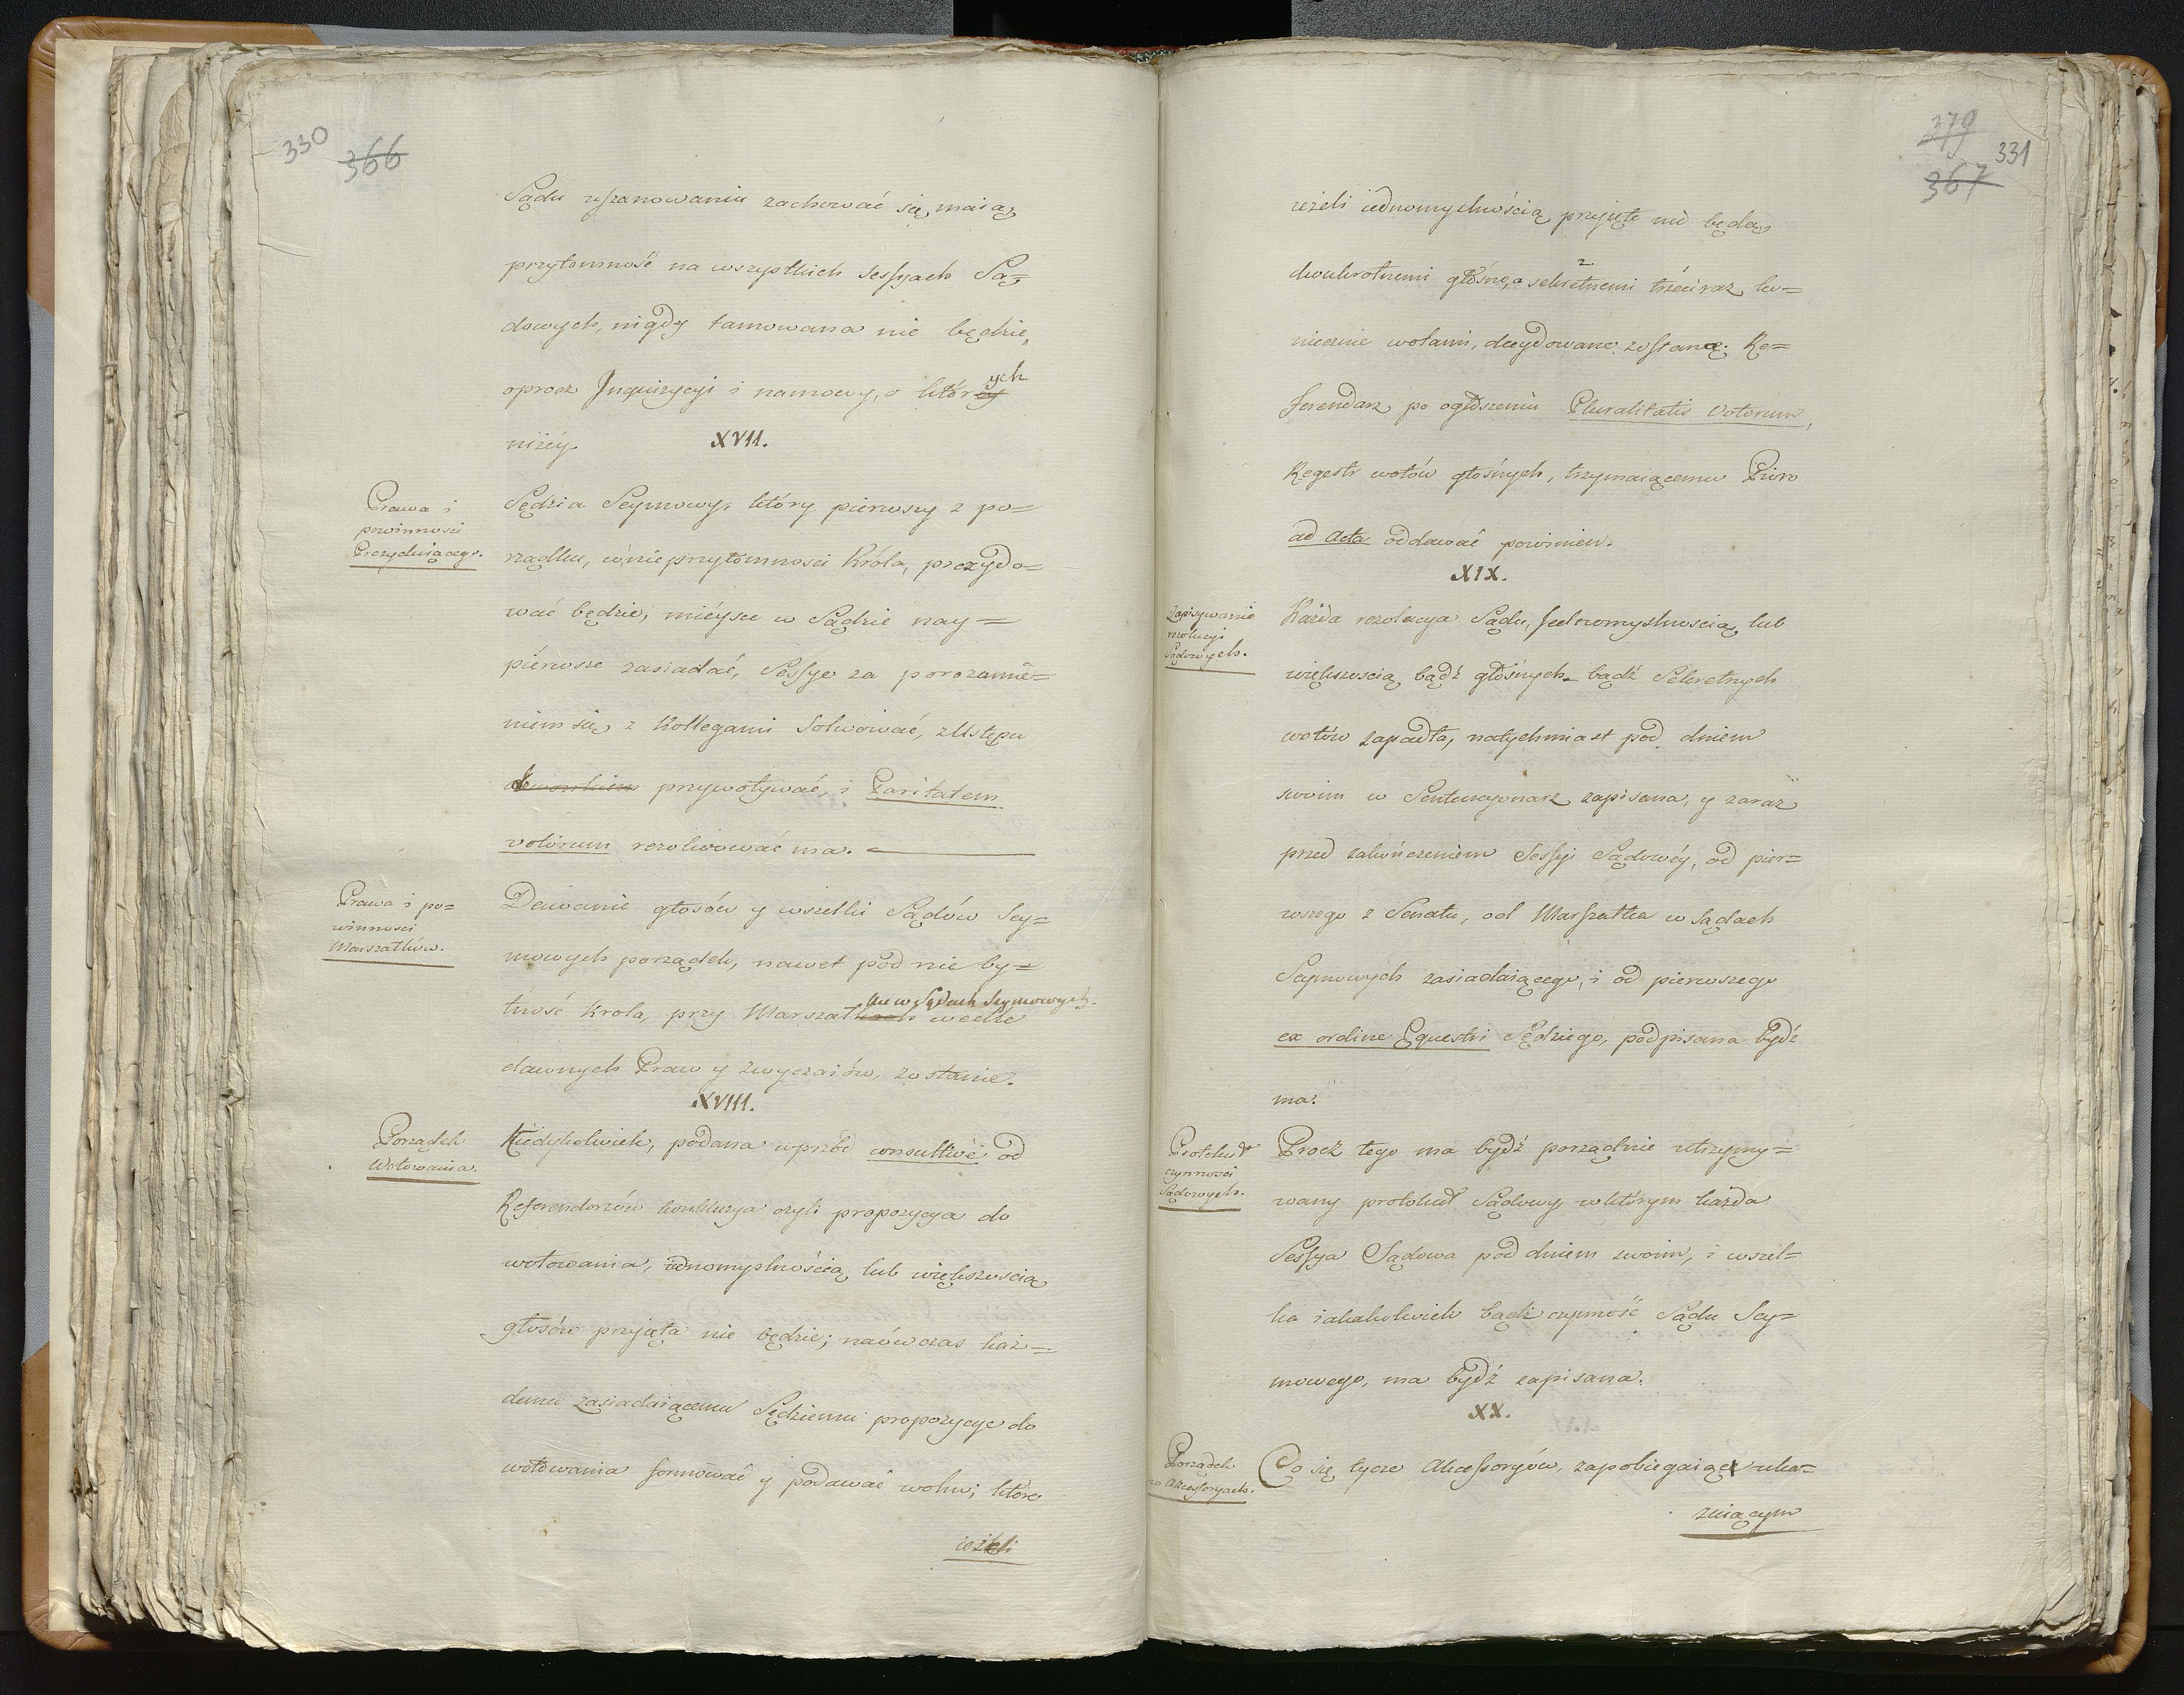 330 366
Sądu uszanowaniu zachować się maią,
przytomność na wszystkich sessyach Są=
dowych, nigdy tamowana nie będzie,
oprocz Inquizycyi i namowy, o których
niżéy.
XVII.
Prawa i
powinnosci
Prezyduiącego.
Sędzia Seymowy, który pierwszy z po=
rządku, w nieprzytomnosci Króla, prezydo=
wać będzie, miéysce w Sądzie nay=
piérwsze zasiadać, Sessye za porozumie=
niem się z Kollegami Solwować, z Ustępu
przywoływać, i Paritatem
votorum rezolwować ma.
Prawa i po=
winnosci
Marszałków.
Dawanie głosów y wszelki Sądów Sey=
mowych porządek, nawet pod nie by=
tność Krola, przy Marszałku w Sądach Seymowych wedle
dawnych Praw y zwyczaiów, zostanie.
XVIII.
Porządek
Wotowania.
Kiedykolwiek, podana wprzód consultivé od
Referendarzów konkluzya czyli propozycya do
wotowania, iednomyślnością lub większoscią
głosów przyięta nie będzie; naówczas każ=
demu zasiadaiącemu Sędziemu propozycye do
wotowania formować y podawać wolno; które
ieżeli
379
367 331
ieżeli iednomyślnością przyięte nie będą,
dwukrotnemi głośno, a sekretnemi trzeci raz ko=
niecznie wotami, decydowane zostaną. Re=
ferendarz po ogłoszeniu Pluralitatis Votorum,
Regestr wotów głośnych, trzymaiącemu Pióro
ad Acta oddawać powinien.
XIX.
Zapisywanie
rezolucyi
Sądowych.
Każda rezolucya Sądu, Jednomyslnoscią, lub
większoscią bądź głośnych bądź Sekretnych
wotów zapadła, natychmiast pod dniem
swoim w Sentencyonarz zapisana, y zaraz
przed zakończeniem Sessyi Sądowéy, od pier=
wszego z Senatu, od Marszałka w Sądach
Seymowych zasiadaiącego, i od pierwszego
ex ordine Equestri Sędziego, podpisana bydź
ma.
Protokuł
czynnosci
Sądowych.
Procz tego ma bydź porządnie utrzymy=
wany protokuł Sądowy, w którym każda
Sessya Sądowa pod dniem swoim, i wszel=
ka iakakolwiek bądź czynność Sądu Sey=
mowego, ma bydź zapisana.
XX.
Porządek
w Akcessoryach.
Co się tycze Akcessoryów, zapobiegaiąc uka=
zuiącym